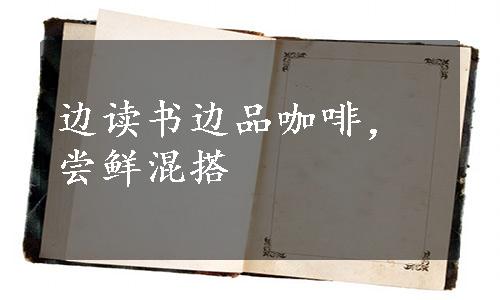 边读书边品咖啡，
尝鲜混搭